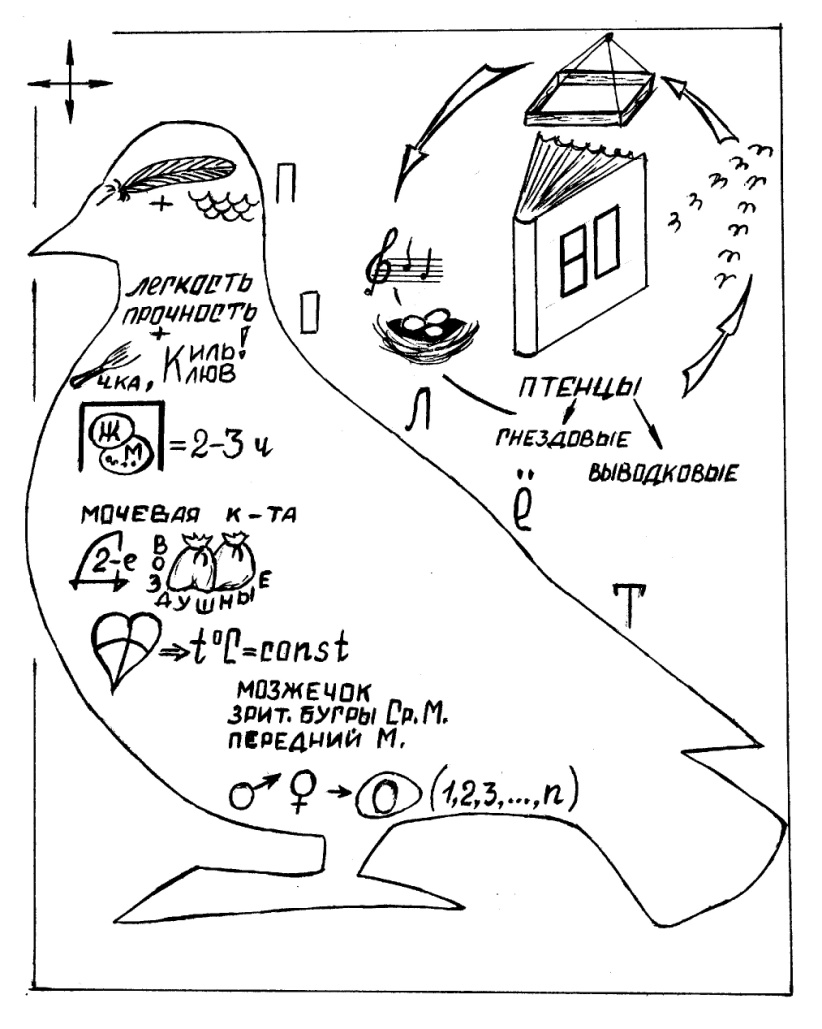 П
+
О
ЛЕГКОСТЬ
ПРОЧНОСТЬ
+
ЧКА, КИЛЬ!
КЛЮВ
Ж
М
=2-3 ч
МОЧЕВАЯ К-ТА
2-е ВОЗДУШНЫЕ
⇒t°C=const
МОЗЖЕЧОК
ЗРИТ. БУГРЫ Ср.М.
ПЕРЕДНИЙ М.
♂ ♀ → (1,2,3,...,n)
Л
Ё
Т
ПТЕНЦЫ
ГНЕЗДОВЫЕ
ВЫВОДКОВЫЕ